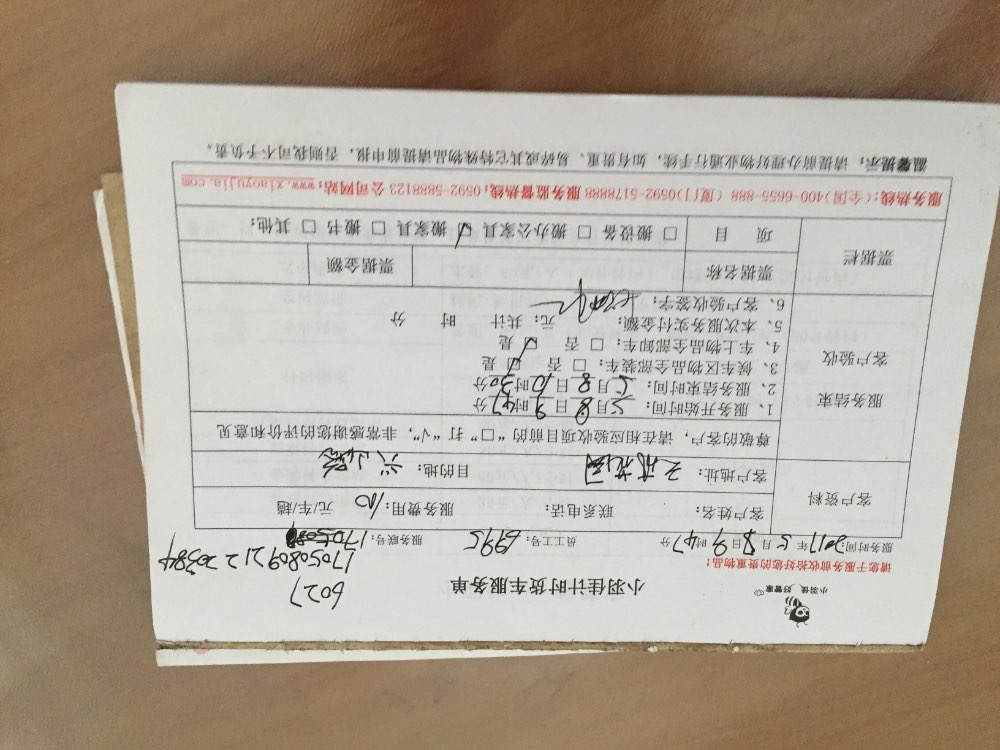 小羽佳 好管家
小羽佳计时货车服务单
6027
请您于服务前收拾好您的贵重物品!
1705080921220384
服务时间: 2017年5月8日9时47分 员工号: 6995 服务联号:
客户资料
客户姓名: 联系电话: 服务费用: 110 元/车/趟
客户地址: 天成花园 目的地:
服务结束 客户验收
尊敬的客户,请在相应验收项目前的“□”打“√”,非常感谢您的评价和意见
1、服务开始时间: 5月8日9时47分
2、服务结束时间: 5月8日10时30分
3、候车区物品全部装车: □ 否 ☑ 是
4、车上物品全部卸车: □ 否 ☑ 是
5、本次服务实付金额: 元; 共计 时 分
6、客户验收签字:
票据栏
票据名称 票据金额
项 目 □ 搬设备 □ 搬办公家具 ☑ 搬家具 □ 搬书 □ 其他:
服务热线:(全国)400-6655-888 (厦门)0592-5178888 服务监管热线:0592-5888123 公司网站: www.xiaoyujia.com
温馨提示: 请提前办理好物业通行手续, 如有贵重、易碎或其它特殊物品请提前申报, 否则我司不予负责。